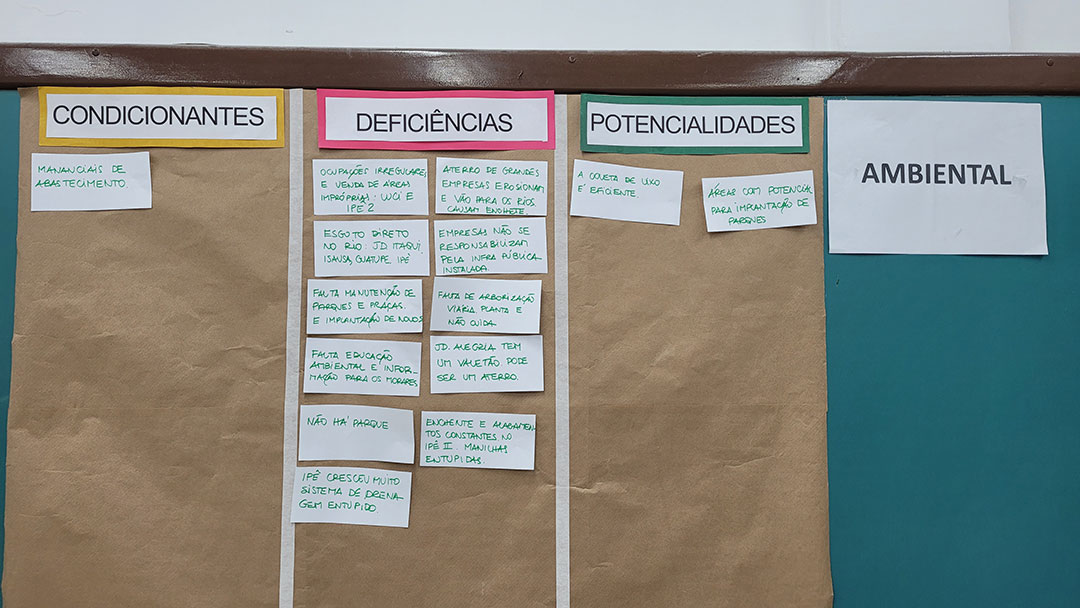 CONDICIONANTES
MANANCIAIS DE
ABASTECIMENTO.
DEFICIÊNCIAS
OCUPAÇÕES IRREGULARES
E VENDA DE ÁREAS
IMPRÓPRIAS: LUCI E
IPÊ 2
ESGUTO DIRETO
NO RIO: JD. ITAQUI
IZAURA, GUATUPE, IPÊ
FALTA MANUTENÇÃO DE
PARQUES E PRAÇAS
E IMPLANTAÇÃO DE NOVOS
FALTA EDUCAÇÃO
AMBIENTAL E INFOR-
MAÇÃO PARA OS MORARES
NÃO HÁ PARQUE
IPÊ CRESCEU MUITO
SISTEMA DE DRENA-
GEM ENTUPIDO.
ATERRO DE GRANDES
EMPRESAS EROSIONAM
E VÃO PARA OS RIOS.
CAUSAM ENCHETE.
EMPRESAS NÃO SE
RESPONSABILIZAM
PELA INFRA PÚBLICA
INSTALADA.
FALTA DE ARBORIZAÇÃO
VIÁRIA. PLANTA E
NÃO CUIDA
JD. ALEGRIA TEM
UM VALETÃO. PODE
SER UM ATERRO.
ENCHENTE E ALAGAMEN-
TOS CONSTANTES NO
IPÊ II. MANILHAS
ENTUPIDAS.
POTENCIALIDADES
A COLETA DE LIXO
É EFICIENTE.
ÁREAS COM POTENCIAL
PARA IMPLANTAÇÃO DE
PARQUES
AMBIENTAL